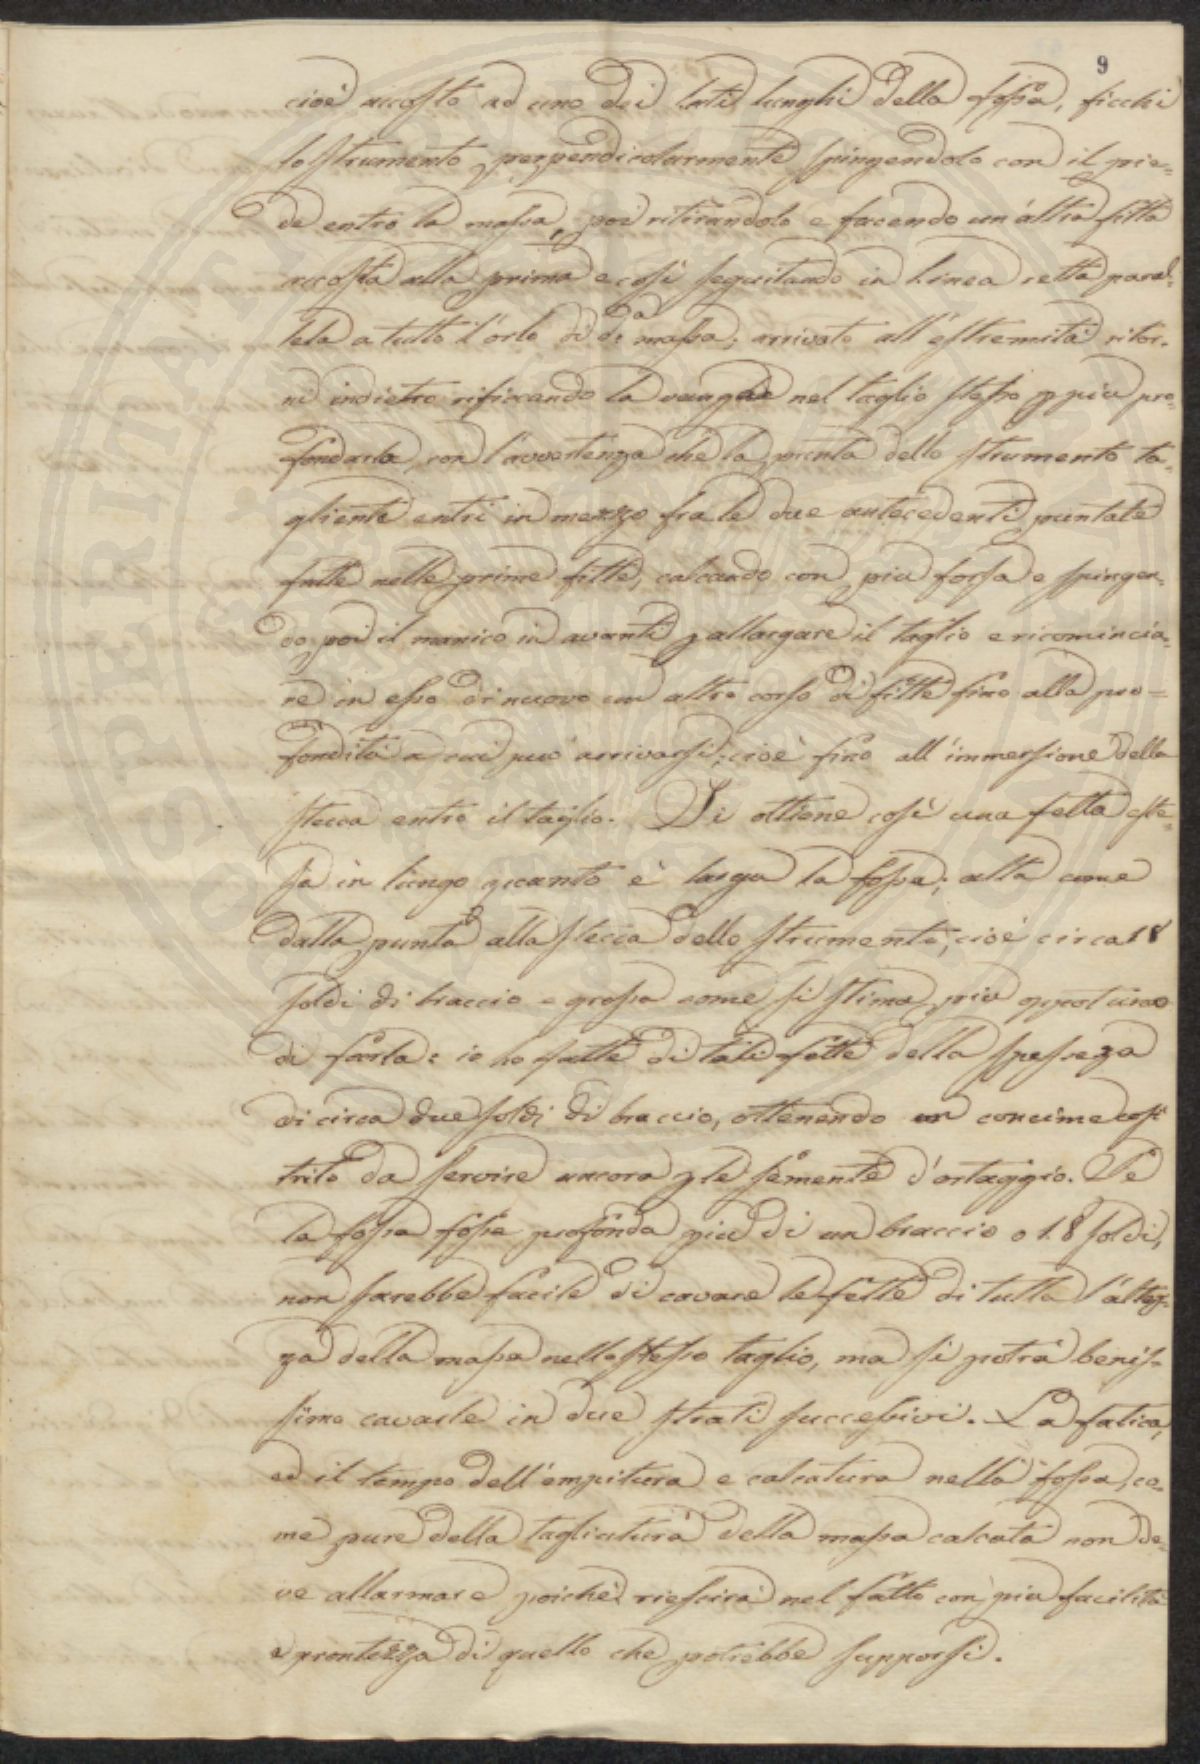 9
cioè accosto ad uno dei lati lunghi della fossa, ficchi
lo strumento perpendicolarmente spingendolo con il pie=
de entro la massa, poi ritirandolo e facendo un'altra fitta
accosta alla prima e così seguitando in linea retta paral=
lela a tutto l'orlo di da massa; arrivato all'estremità ritor-
ni indietro rificcando la vanga nel taglio stesso p più pro=
fondarla, con l'avvertenza che la punta dello strumento ta=
gliente entri in mezzo fra le due antecedenti puntate
fatte nelle prime fitte, calcando con più forza e spingen=
do poi il manico in avanti p allargare il taglio e ricomincia=
re in esso di nuovo un altro corso di fitte fino alla pro=
fondità a cui può arrivarsi; cioè fino all'immersione della
stecca entro il taglio. Si ottiene così una fetta este=
sa in lungo quanto è larga la fossa; alta come
dalla punta alla stecca dello strumento, cioè circa 18
soldi di braccio e grossa come si stima più opportuno
di farla: io ho fatte di tali fette della spessezza
di circa due soldi di braccio, ottenendo un concime così
trito da servire ancora p le semente d'ortaggio. Se
la fossa fosse profonda più di un braccio o 18 soldi,
non sarebbe facile di cavare le fette di tutta l'altez=
za della massa nello stesso taglio, ma si potrà benis=
simo cavarle in due strati successivi. La fatica,
ed il tempo dell'empitura e calcatura nella fossa, co=
me pure della tagliatura della massa calcata non de=
ve allarmare poichè riescirà nel fatto con più facilità
e prontezza di quello che potrebbe supporsi.
PROSPERITATI PUBLICAE AUGENDAE